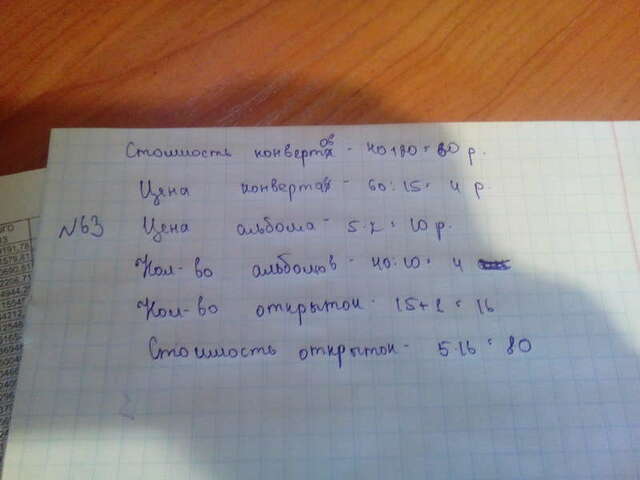 Стоимость конвертов - 40+80= 60 р.
Цена конверта - 60:15= 4 р.
№63 Цена альбома - 5·2= 10 р.
Кол-во альбомов - 40:10= 4
Кол-во открыток - 15+1= 16
Стоимость открыток - 5·16= 80